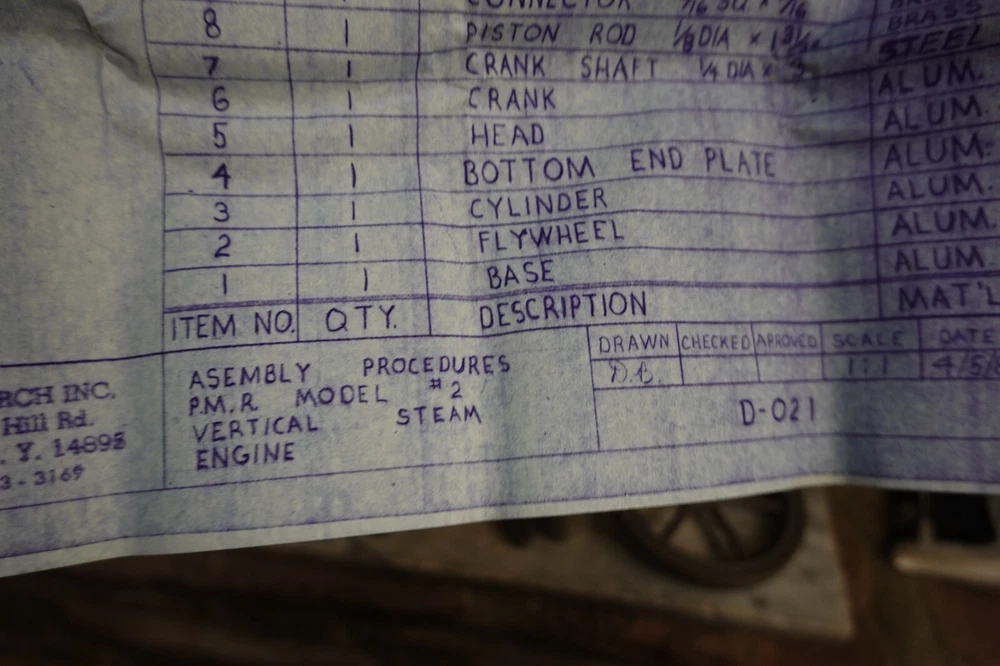 CONNECTOR
8 1 PISTON ROD 1/8 DIA × BRASS
7 1 CRANK SHAFT 1/4 DIA × STEEL
6 1 CRANK ALUM.
5 1 HEAD ALUM.
4 1 BOTTOM END PLATE ALUM.
3 1 CYLINDER ALUM.
2 1 FLYWHEEL ALUM.
1 1 BASE ALUM.
ITEM NO. QTY. DESCRIPTION MAT'L
DRAWN CHECKED APPROVED SCALE DATE
D.B. 1:1 4/5/
D-021
ASEMBLY PROCEDURES
P.M.R MODEL #2
VERTICAL STEAM
ENGINE
RCH INC.
Hill Rd.
. Y. 14895
3-3169